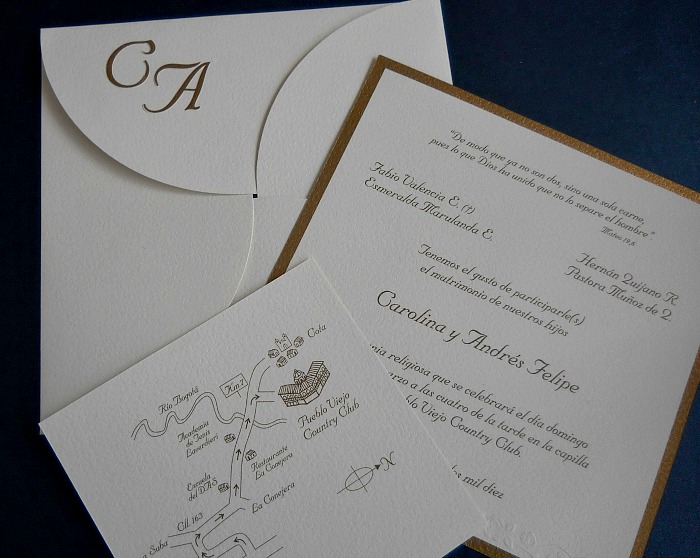 C A
"De modo que ya no son dos, sino una sola carne,
pues lo que Dios ha unido que no lo separe el hombre"
Mateo 19,6
Fabio Valencia E. (†)
Esmeralda Marulanda E.
Hernán Quijano R.
Pastora Muñoz de Q.
Tenemos el gusto de participarle(s)
el matrimonio de nuestros hijos
Carolina y Andrés Felipe
religiosa que se celebrará el día domingo
a las cuatro de la tarde en la capilla
Viejo Country Club.
mil diez
Cota
Km 7
Río Bogotá
Pueblo Viejo
Country Club
Academia
de Tenis
Restaurante
La Conejera
Escuela
del DAS
La Conejera
N
Cll. 163
Suba